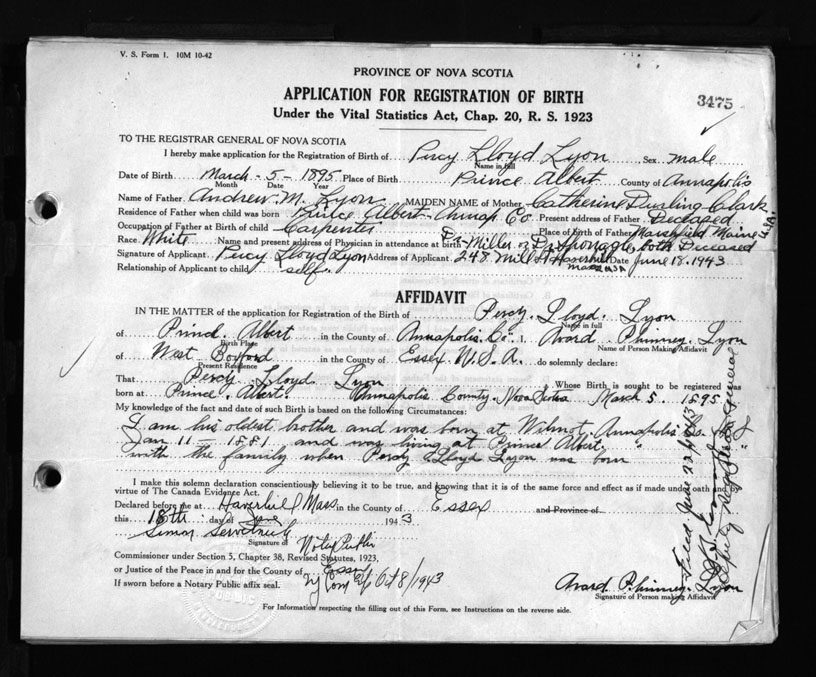 V. S. Form 1. 10M 10-42
PROVINCE OF NOVA SCOTIA
3475
APPLICATION FOR REGISTRATION OF BIRTH
Under the Vital Statistics Act, Chap. 20, R. S. 1923
TO THE REGISTRAR GENERAL OF NOVA SCOTIA
I hereby make application for the Registration of Birth of Percy Lloyd Lyon Sex male
Name in full
Date of Birth March - 5 - 1895 Place of Birth Prince Albert County of Annapolis
Month Date Year
Name of Father Andrew. M. Lyon MAIDEN NAME of Mother Catherine Durling Clark
Residence of Father when child was born Prince Albert - Annap. Co Present address of Father Deceased
Occupation of Father at Birth of child Carpenter Place of Birth of Father Marshfield Maine U.S.A.
Race White Name and present address of Physician in attendance at birth Dr Miller. or Dr Sponagle, both Deceased
Signature of Applicant Percy Lloyd Lyon Address of Applicant 248 Mill St Haverhill Mass USA Date June 18. 1943
Relationship of Applicant to child self.
AFFIDAVIT
IN THE MATTER of the application for Registration of the Birth of Percy. Lloyd. Lyon
Name in full
of Prince Albert in the County of Annapolis Co. I, Avard Phinney. Lyon
Birth Place Name of Person Making Affidavit
of West Boxford in the County of Essex U.S.A. do solemnly declare:
Present Residence
That Percy Lloyd Lyon Whose Birth is sought to be registered was
born at Prince Albert. Annapolis County. Nova Scotia March 5. 1895
My knowledge of the fact and date of such Birth is based on the following Circumstances:
I am his oldest brother and was born at Wilmot, Annapolis Co. N S
Jan 11 - 1881 and was living at Prince Albert, " " "
with the family when Percy Lloyd Lyon was born
I make this solemn declaration conscientiously believing it to be true, and knowing that it is of the same force and effect as if made under oath and by
virtue of The Canada Evidence Act.
Declared before me at Haverhill Mass in the County of Essex and Province of
this 18th day of June 1943
Signature of Notary Public
Commissioner under Section 5, Chapter 38, Revised Statutes, 1923,
or Justice of the Peace in and for the County of Essex
If sworn before a Notary Public affix seal. My Com Exp Oct 8/1943
Avard Phinney Lyon
Signature of Person making Affidavit
For Information respecting the filling out of this Form, see Instructions on the reverse side.
Filed June 22/1943
Deputy Registrar General